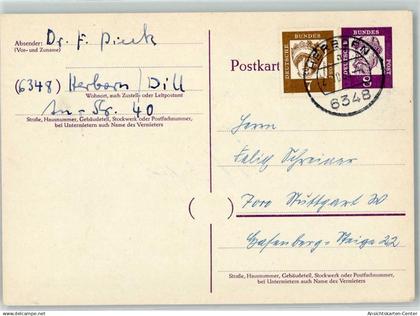 Absender: Dr. F. Pieck
(Vor- und Zuname)
(6348) Herborn / Dill
Wohnort, auch Zustell- oder Leitpostamt
40
Straße, Hausnummer, Gebäudeteil, Stockwerk oder Postfachnummer,
bei Untermietern auch Name des Vermieters
Postkart
DEUTSCHE BUNDES POST
DEUTSCHE BUNDES POST
HERBORN
6348
Herrn
Felix Schreiner
7000 Stuttgart W
Hasenberg-Steige 22
Straße, Hausnummer, Gebäudeteil, Stockwerk oder Postfachnummer,
bei Untermietern auch Name des Vermieters
Ansichtskarten-Center